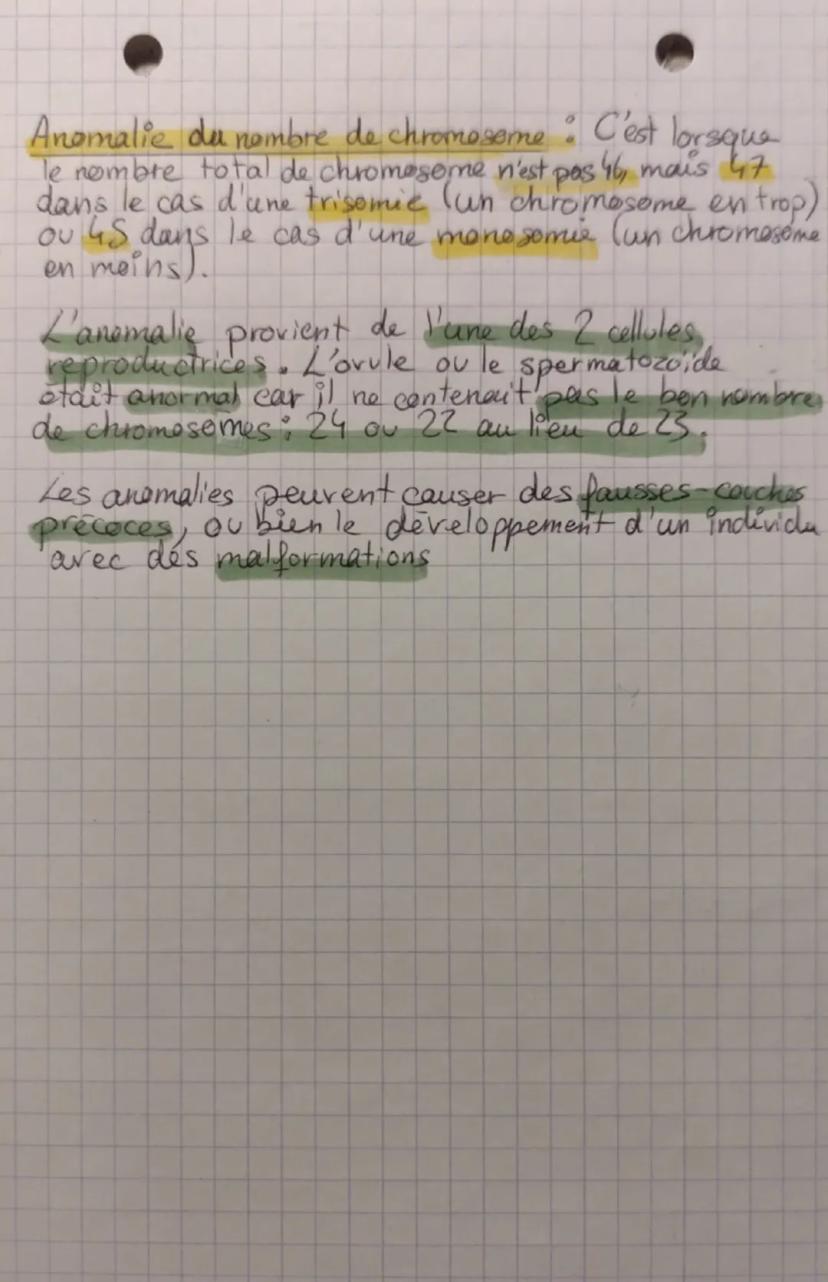 Anomalie du nombre de chromosome : C'est lorsque
le nombre total de chromosome n'est pas 46, mais 47
dans le cas d'une trisomie (un chromosome en trop)
ou 45 dans le cas d'une monosomie (un chromosome
en moins).
L'anomalie provient de l'une des 2 cellules
reproductrices. L'ovule ou le spermatozoïde
était anormal car il ne contenait pas le bon nombre
de chromosomes : 24 ou 22 au lieu de 23.
Les anomalies peuvent causer des fausses-couches
précoces, ou bien le développement d'un individu
avec des malformations